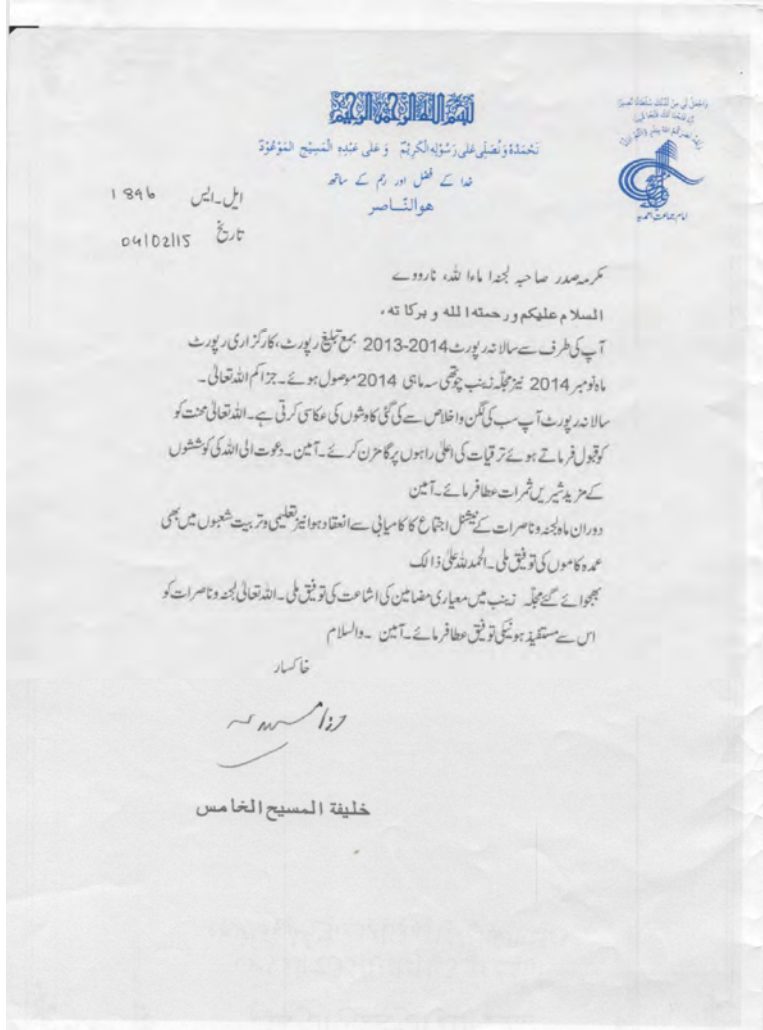 بسم الله الرحمن الرحيم
نَحْمَدُهٗ وَنُصَلِّی عَلٰی رَسُوْلِهِ الْكَرِيْمِ وَ عَلٰی عَبْدِهِ الْمَسِيْحِ الْمَوْعُوْدِ
خدا کے فضل اور رحم کے ساتھ
هوالنّاصر
امام جماعت احمدیہ
ایل۔ایس 1896
تاریخ 04/02/15
مکرمہ صدر صاحبہ لجنہ اماء اللہ، ناروے
السلام علیکم ورحمتہ اللہ وبرکاتہ،
آپ کی طرف سے سالانہ رپورٹ 2014-2013 بمع تبلیغ رپورٹ، کارگزاری رپورٹ
ماہ نومبر 2014 نیز مجلّہ زینب چوتھی سہ ماہی 2014 موصول ہوئے۔ جزاکم اللہ تعالیٰ۔
سالانہ رپورٹ آپ سب کی لگن و اخلاص سے کی گئی کاوشوں کی عکاسی کرتی ہے۔ اللہ تعالیٰ محنت کو
کوقبول فرماتے ہوئے ترقیات کی اعلیٰ راہوں پر گامزن کرے۔ آمین۔ دعوت الی اللہ کی کوششوں
کے مزید شیریں ثمرات عطا فرمائے۔ آمین
دوران ماہ لجنہ و ناصرات کے نیشنل اجتماع کا کامیابی سے انعقاد ہوا نیز تعلیمی و تربیت شعبوں میں بھی
عمدہ کاموں کی توفیق ملی۔ الحمد للہ علیٰ ذالک
بھجوائے گئے مجلّہ زینب میں معیاری مضامین کی اشاعت کی توفیق ملی۔ اللہ تعالیٰ لجنہ و ناصرات کو
اس سے مستفیذ ہونیکی توفیق عطا فرمائے۔ آمین ۔والسلام
خاکسار
خلیفة المسیح الخامس